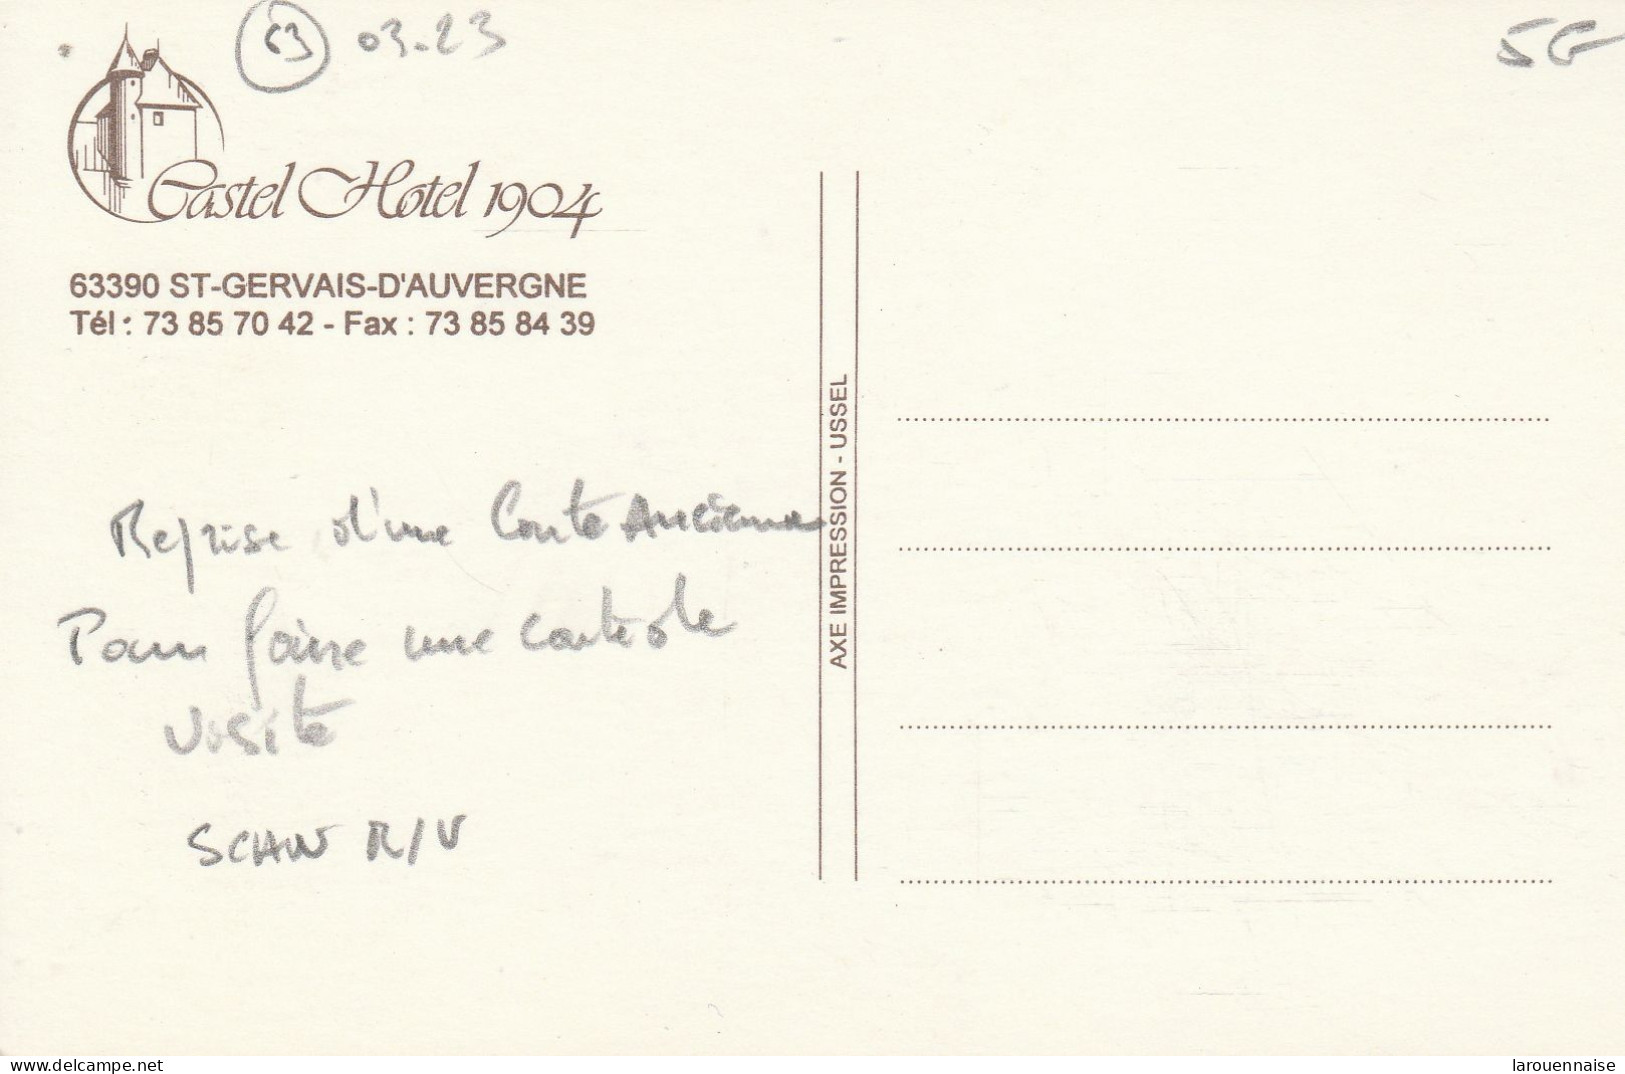 63 03.23
5€
Castel Hotel 1904
63390 ST-GERVAIS-D'AUVERGNE
Tél : 73 85 70 42 - Fax : 73 85 84 39
AXE IMPRESSION - USSEL
Reprise d'une Carte Ancienne
Pour faire une carte de
visite
SCAN R/V
www.delcampe.net
larouennaise